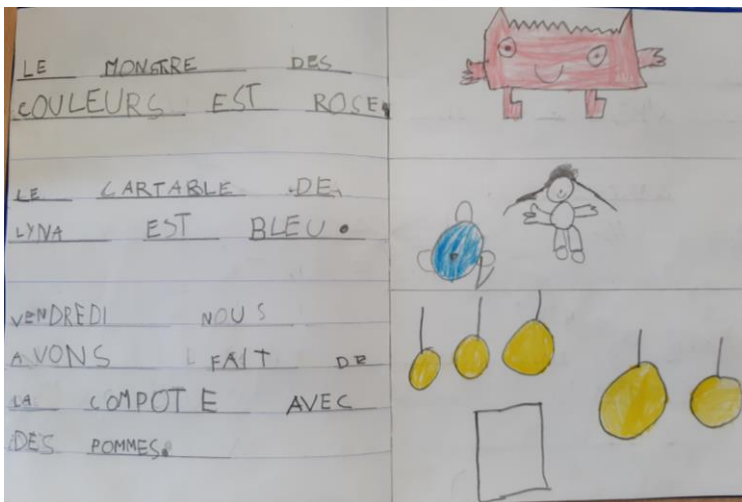 LE MONSTRE DES
COULEURS EST ROSE.
LE CARTABLE DE
LYNA EST BLEU.
VENDREDI NOUS
AVONS FAIT DE
LA COMPOTE AVEC
DES POMMES.